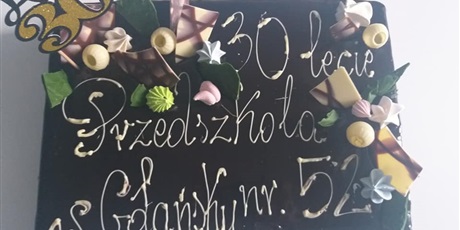 30
30 lecie
Przedszkola
nr. 52